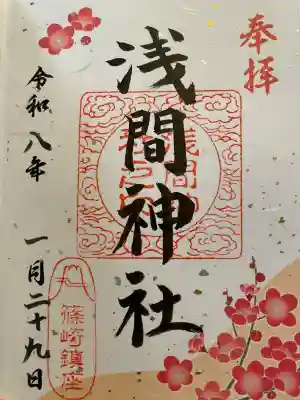 奉拝
浅間神社
篠崎鎮座
令和八年 一月二十九日